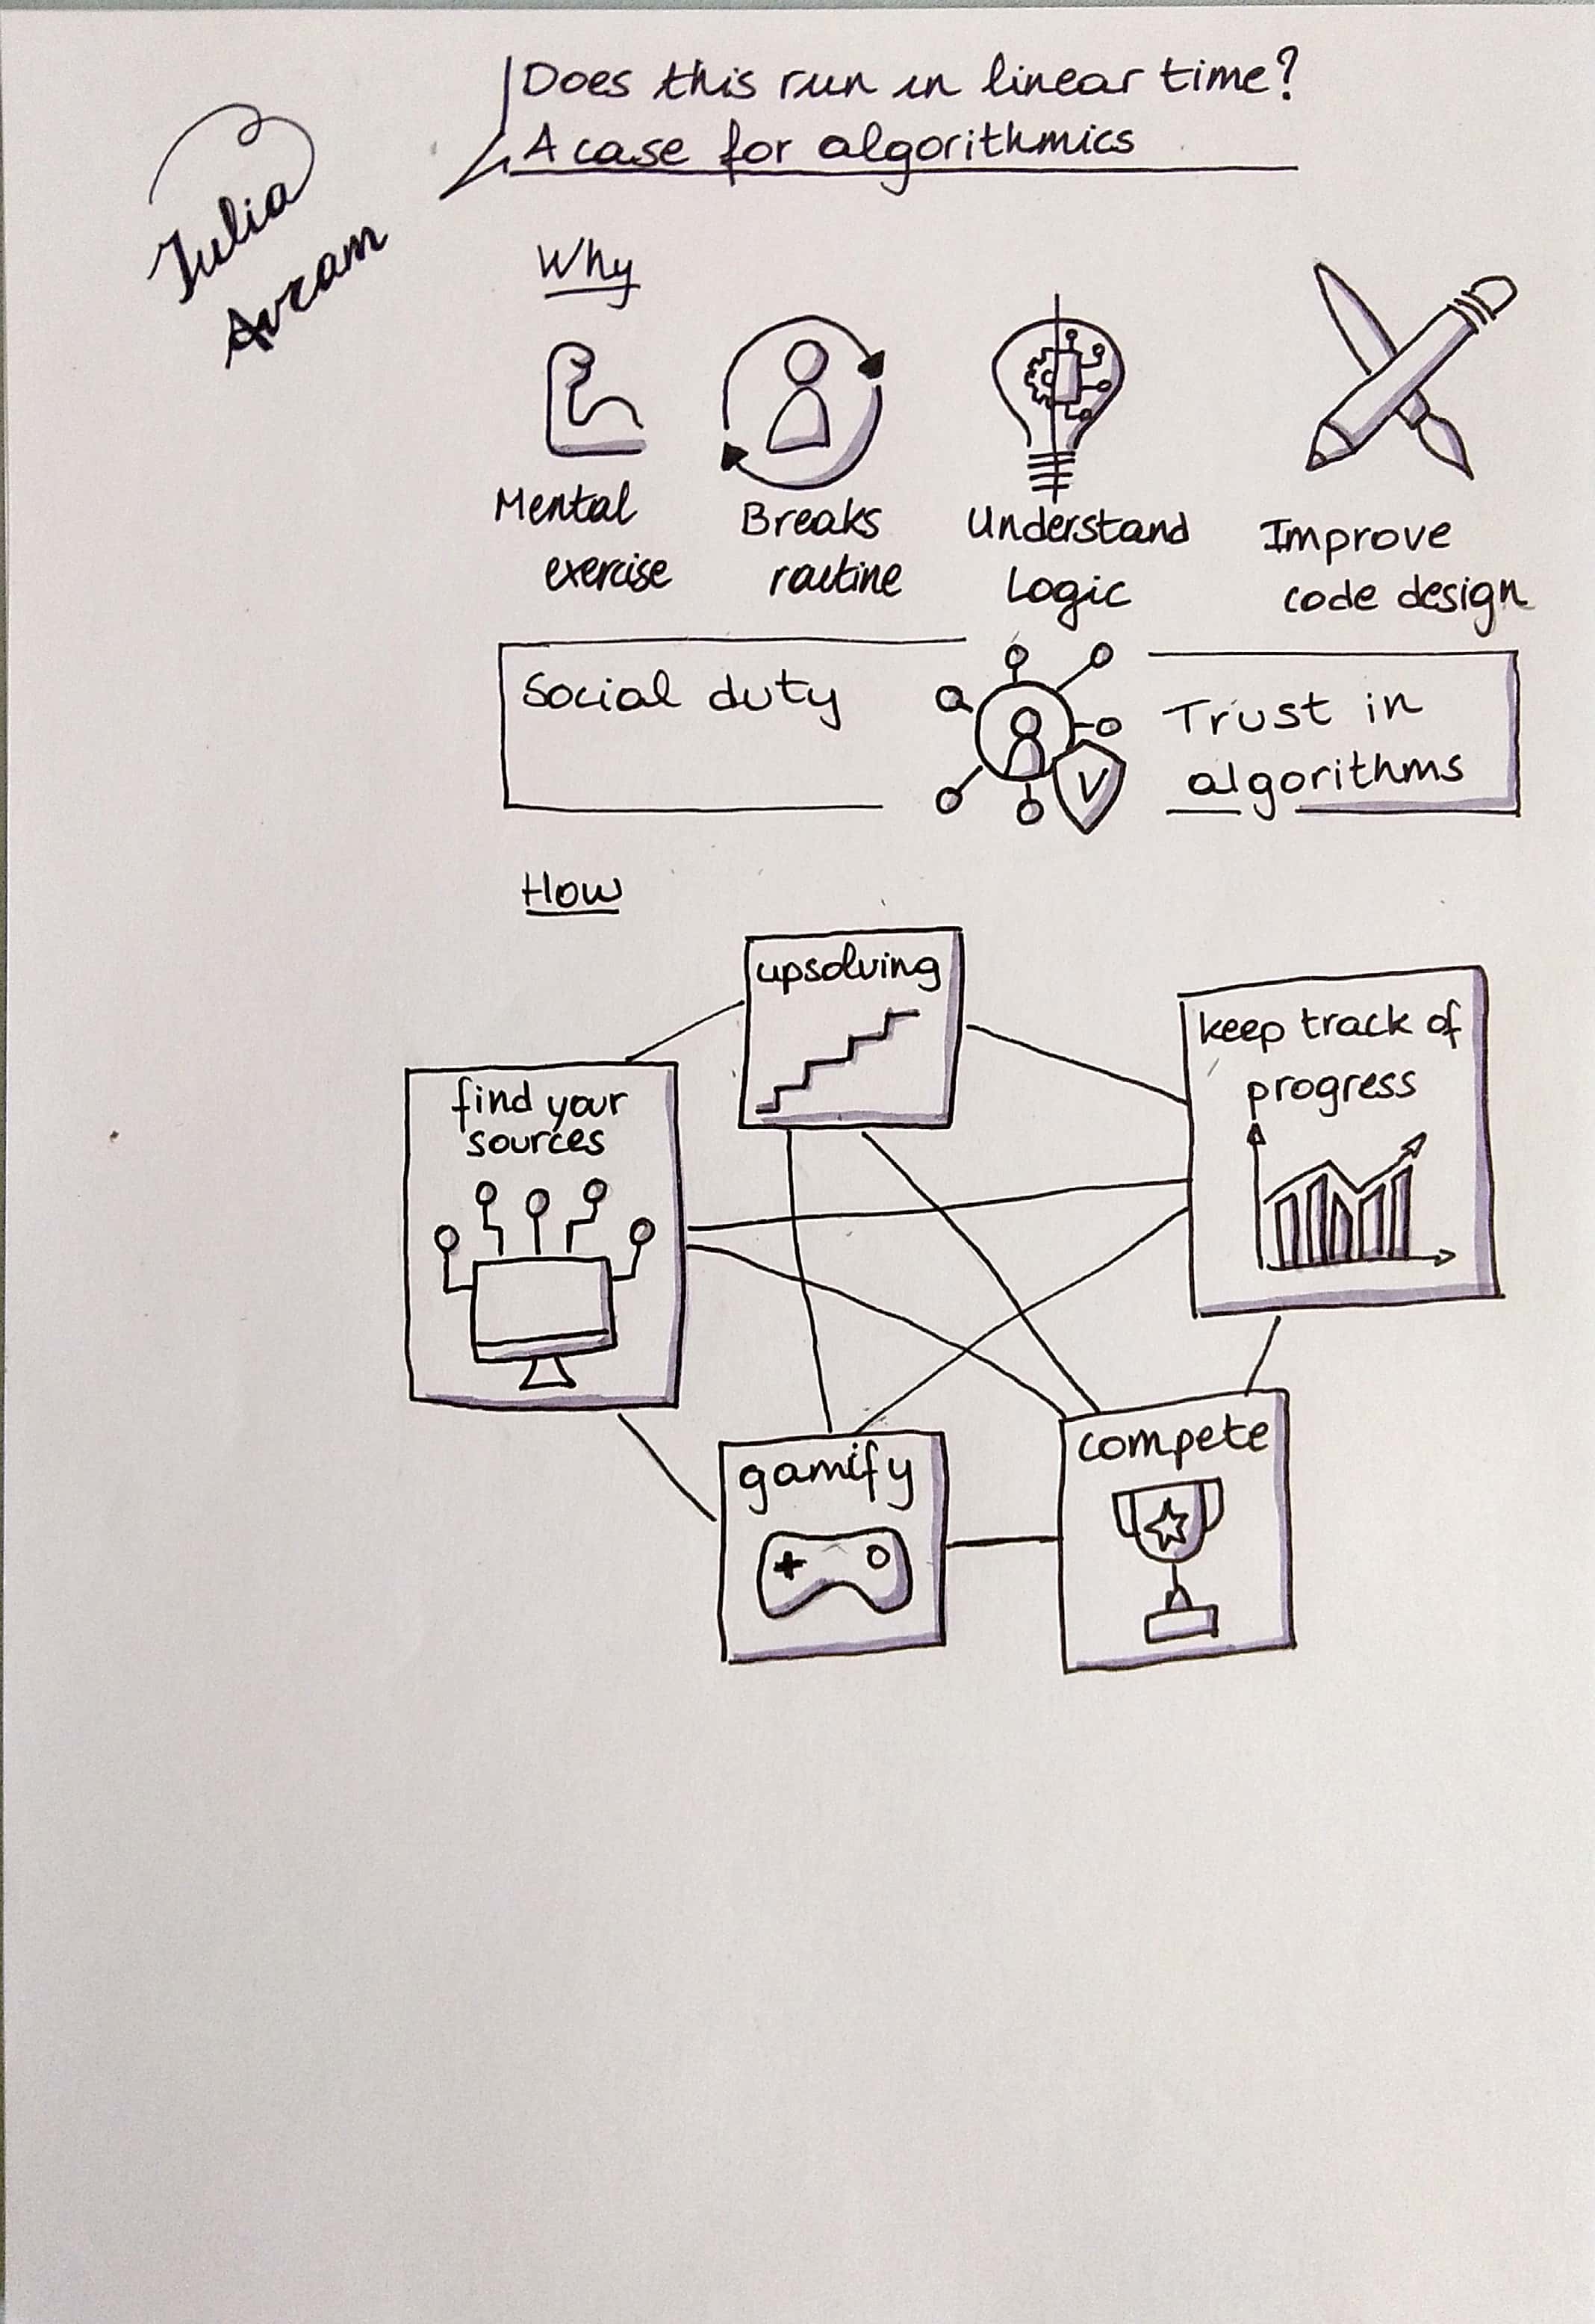 Does this run in linear time?
A case for algorithmics
Iulia
Avram
Why
Mental
exercise
Breaks
routine
Understand
Logic
Improve
code design
Social duty
Trust in
algorithms
V
How
upsolving
keep track of
progress
find your
sources
gamify
compete